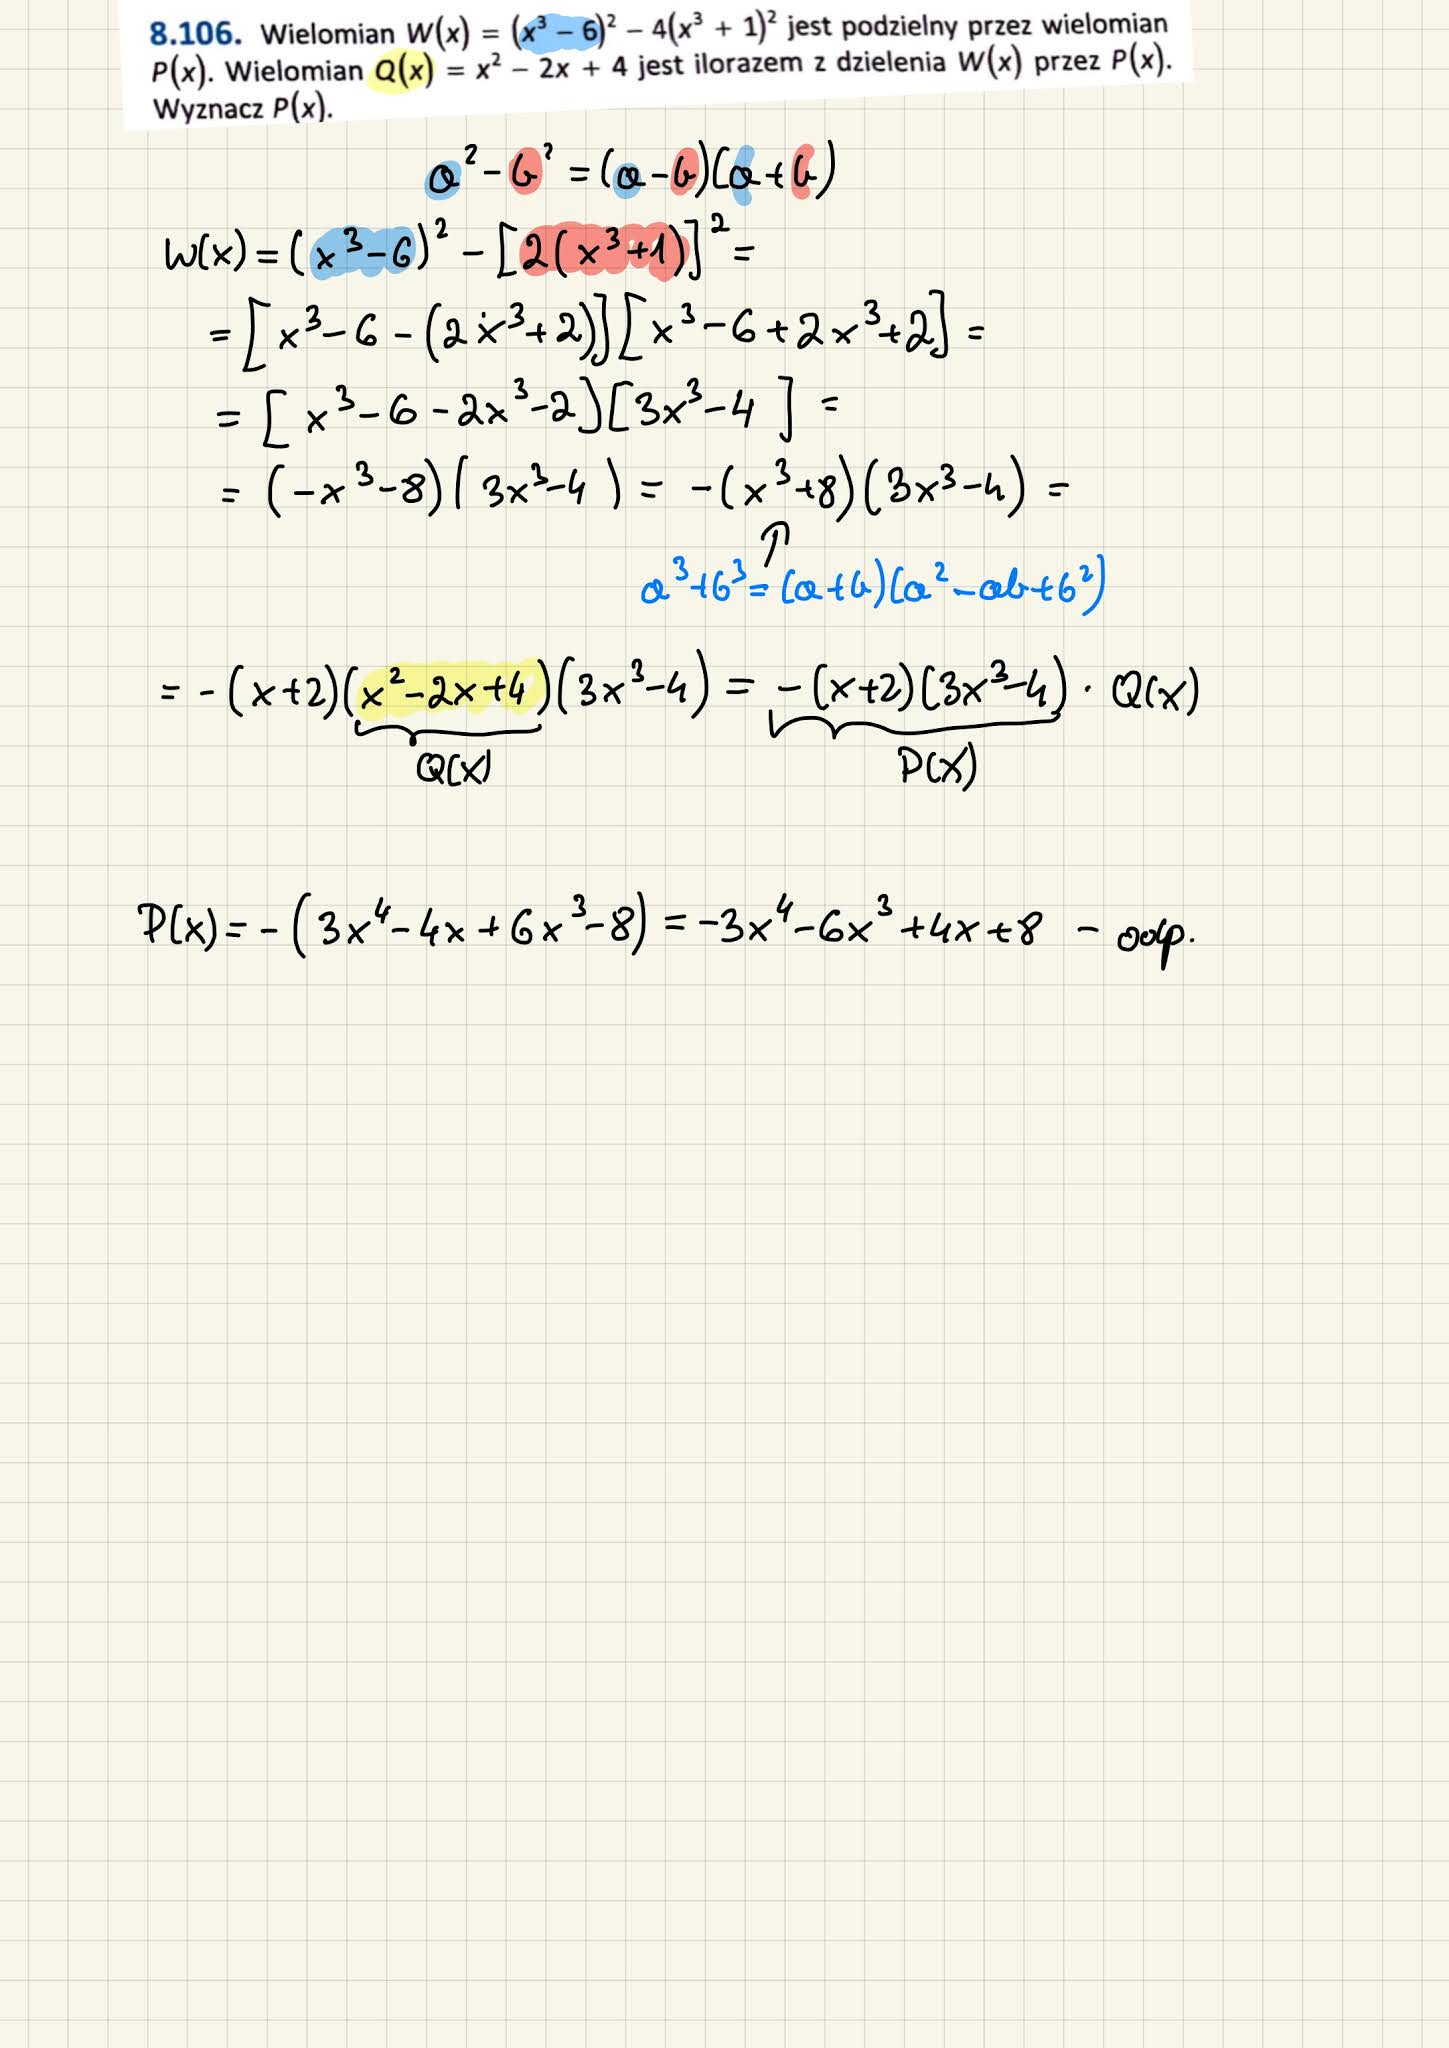 8.106. Wielomian W(x) = (x³ − 6)² − 4(x³ + 1)² jest podzielny przez wielomian
P(x). Wielomian Q(x) = x² − 2x + 4 jest ilorazem z dzielenia W(x) przez P(x).
Wyznacz P(x).
a² - b² = (a-b)(a+b)
W(x) = (x³-6)² - [2(x³+1)]² =
= [x³-6-(2x³+2)][x³-6+2x³+2] =
= [x³-6-2x³-2][3x³-4] =
= (-x³-8)(3x³-4) = -(x³+8)(3x³-4) =
↑
a³+b³=(a+b)(a²-ab+b²)
= -(x+2)(x²-2x+4)(3x³-4) = -(x+2)(3x³-4) · Q(x)
Q(x) P(x)
P(x) = -(3x⁴-4x+6x³-8) = -3x⁴-6x³+4x+8 - odp.